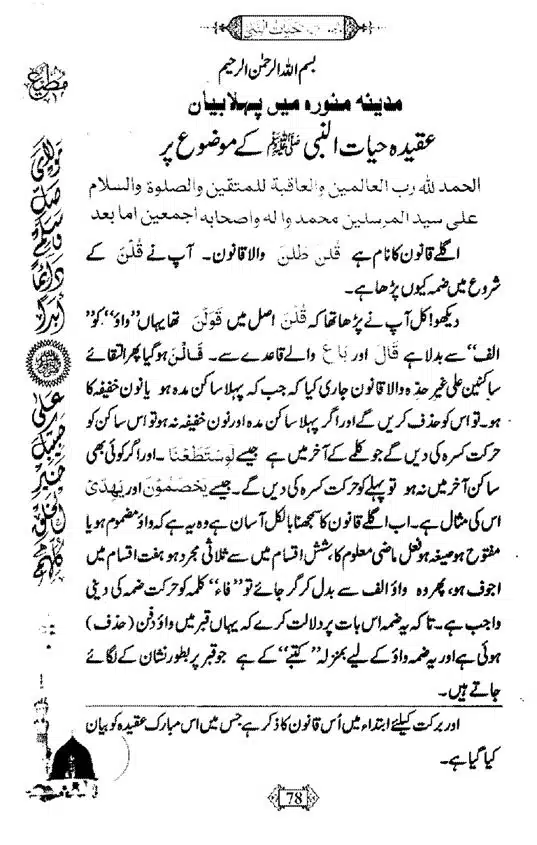 حیات النبی
بسم اللہ الرحمٰن الرحیم
مدینہ منورہ میں پہلا بیان
عقیدہ حیات النبی ﷺ کے موضوع پر
الحمد للہ رب العالمین والعاقبة للمتقین والصلوة والسلام
علی سید المرسلین محمد والہ واصحابہ اجمعین اما بعد
اگلے قانون کا نام ہے قُلْنَ طُلْنَ والا قانون۔ آپ نے قُلْنَ کے
شروع میں ضمہ کیوں پڑھا ہے۔
دیکھو! کل آپ نے پڑھا تھا کہ قُلْنَ اصل میں قَوَلْنَ تھا یہاں ’’واؤ‘‘ کو ’’
الف‘‘ سے بدلا ہے قَالَ اور بَاعَ والے قاعدے سے۔ قَالْنَ ہو گیا پھر التقائے
ساکنین علی غیر حدہ والا قانون جاری کیا کہ جب کہ پہلا ساکن مدہ ہو یا نون خفیفہ کا
ہو۔ تو اس کو حذف کریں گے اور اگر پہلا ساکن مدہ اور نون خفیفہ نہ ہو تو اس ساکن کو
حرکت کسرہ کی دیں گے جو کلمے کے آخر میں ہے جیسے لَوِسْتَطَعْنَا ۔ اور اگر کوئی بھی
ساکن آخر میں نہ ہو تو پہلے کو حرکت کسرہ کی دیں گے۔ جیسے یَخِصِّمُوْنَ اور یَهِدِّیْ
اس کی مثال ہے۔ اب اگلے قانون کا سمجھنا بالکل آسان ہے وہ یہ ہے کہ واؤ مضموم ہو یا
مفتوح ہو صیغہ ہو فعل ماضی معلوم کا، شش اقسام میں سے ثلاثی مجرد ہو ہفت اقسام میں
اجوف ہو، پھر وہ واؤ الف سے بدل کر گر جائے تو ’’فاء‘‘ کلمہ کو حرکت ضمہ کی دینی
واجب ہے۔ تاکہ یہ ضمہ اس بات پر دلالت کرے کہ یہاں قبر میں واؤ دفن (حذف)
ہوئی ہے اور یہ ضمہ واؤ کے لیے بمنزلہ ’’کتبے‘‘ کے ہے جو قبر پر بطور نشان کے لگائے
جاتے ہیں۔
اور برکت کیلئے ابتداء میں اُس قانون کا ذکر ہے جس میں اس مبارک عقیدہ کو بیان
کیا گیا ہے۔
78
مولای
صل
وسلم
دائما
ابدا
علی
حبیبک
خیر
الخلق
کلهم